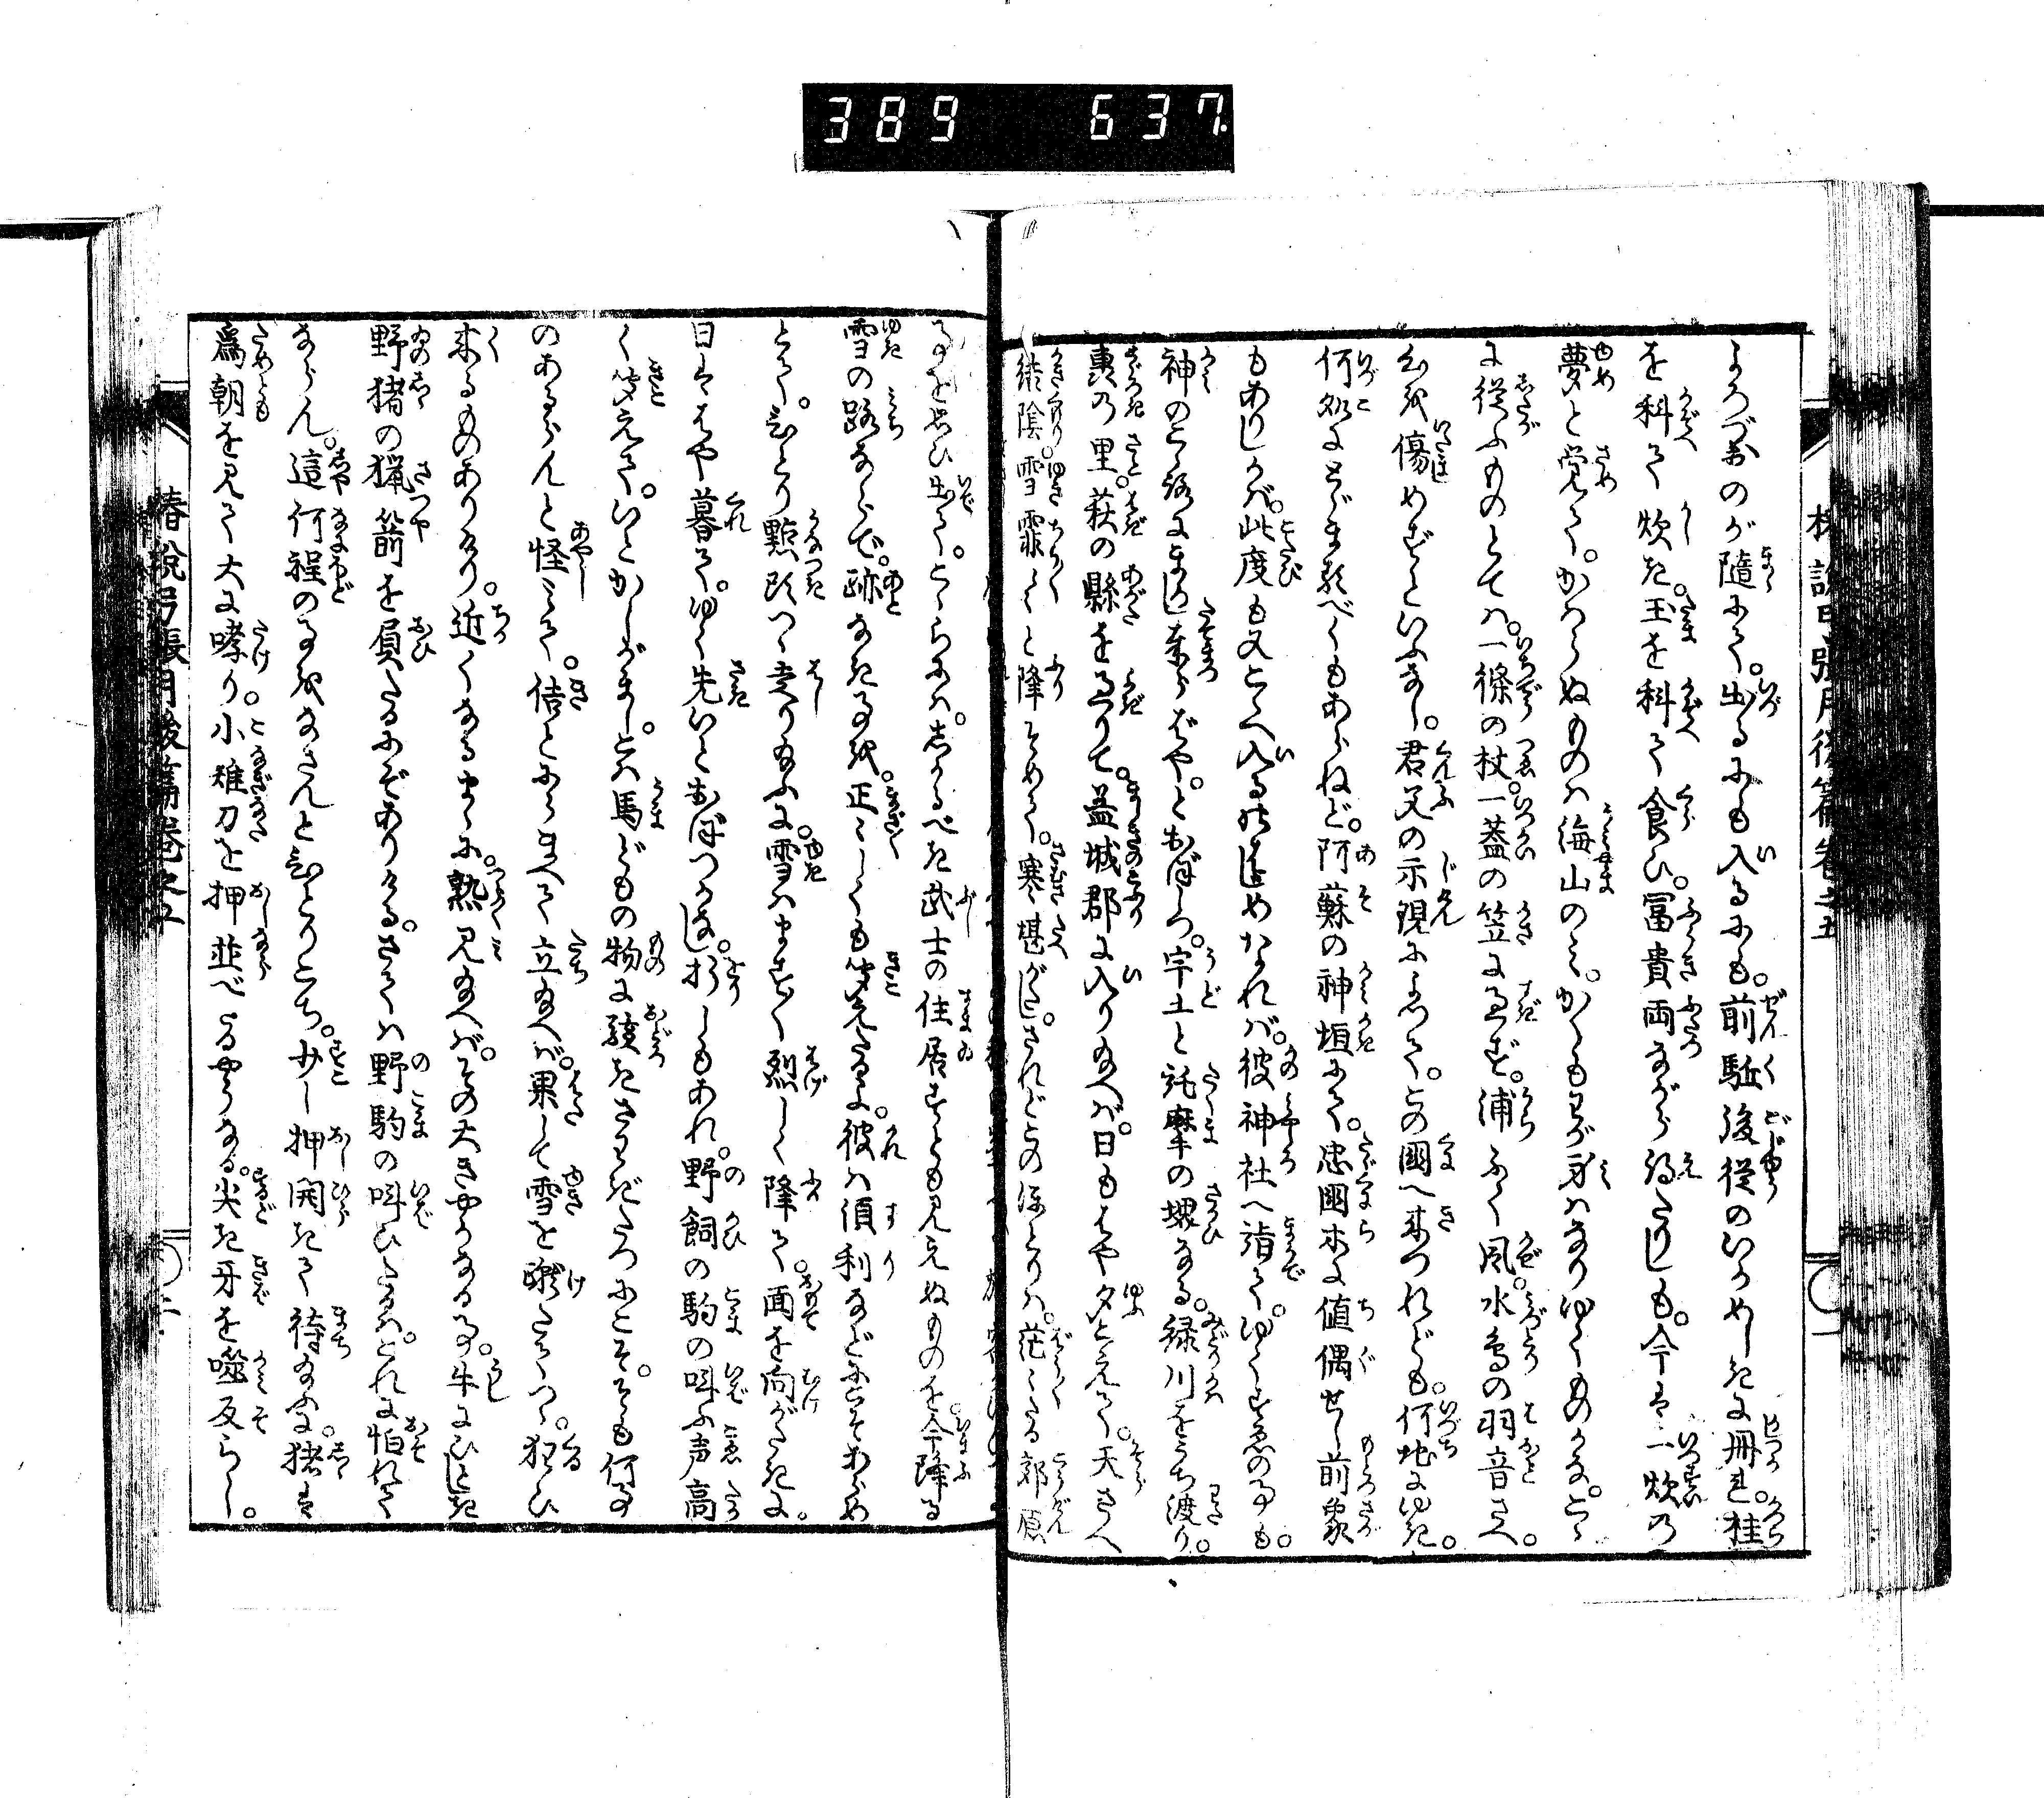 389 637
椿説弓張月後篇巻之五
よろづおのが随にて。出るにも入るにも。前駈後従のいかめしきに冊れ。桂
を科て炊き。玉を科て食ひ。冨貴両ながら得たりしも。今は一炊の
夢と覚て。かはらぬものは海山のみ。かくもわが身はなりゆくものかな。とゝ
に従ふものとては。一條の杖。一蓋の笠に過ず。浦ふく風。水鳥の羽音さへ。
心を傷めずといふなし。君父の示現によつて。この國へ来つれども。何地にゆき。
何処にとゞまるべくもあらねど。阿蘇の神垣にて。忠國木に値偶せし前象
もありしかば。此度も又とゝへ入る始めなれば。彼神社へ詣て。ゆくすゑの事も。
神のこゝろにまかし奉らばや。とおぼしつ。宇土と託摩の堺なる。緑川をうち渡り。
裏の里。萩の縣を過りて。益城郡に入り給へば。日もはや夕とえて。天さへ
結陰。雪霏々と降そめて。寒堪がし。されどこのほとりは。茫々たる郊原
事を思ひ出て。こゝらには。しかるべき武士の住居すとも見えぬものを。今降る
雪の路ならで。跡なき事を。正しくも聞えたるよ。彼は須利などにこそあらめ
とて。ひとり點頭つゝ走り給ふに。雪はますます烈しく降て。面を向がたきに。
日ははや暮て。ゆく先いとおぼつかなし。折しもあれ。野飼の駒の叫ぶ声高
く聞えて。いとかしがまし。こは馬どもの物に駭きさわぎたつにこそ。そも何事
のあるらんと怪みて。佶とふりかへて立給へば。果して雪を蹴たてつゝ。狂ひ
来るものありけり。近くなるまゝに。熟見給へば。その大きやかなる事。牛にひとしき
野猪の猟箭を負たるにぞありける。さては野駒の叫びたるは。これに怕れて
ならん。這何程の事をなさんとひとりごち。少し押開きて待給ふに。猪は
為朝を見て大に哮り。小薙刀を押並べたるやうなる。尖き牙を噬反らし。
椿説弓張月後篇巻之五
二